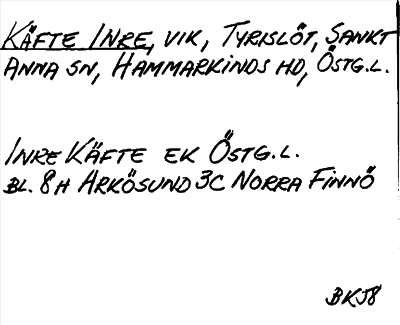 KÄFTE INRE, VIK, TYRISLÖT, SANKT
ANNA SN, HAMMARKINDS HD, ÖSTG.L.
INRE KÄFTE EK ÖSTG.L.
BL. 8H ARKÖSUND 3C NORRA FINNÖ
BKJ8